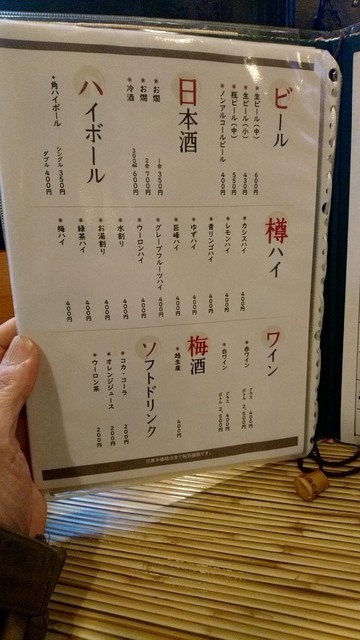 ビール
生ビール(中) 600円
生ビール(小) 430円
瓶ビール(中) 550円
ノンアルコールビール 400円
日本酒
お燗 1合 350円
お燗 2合 700円
冷酒 300ml 600円
ハイボール
角ハイボール シングル 350円
ダブル 400円
樽ハイ
カシスハイ 400円
レモンハイ 400円
青リンゴハイ 400円
ゆずハイ 400円
巨峰ハイ 400円
グレープフルーツハイ 400円
ウーロンハイ 400円
水割り 400円
お湯割り 400円
緑茶ハイ 400円
梅ハイ 400円
ワイン
赤ワイン グラス 400円
ボトル 2,500円
白ワイン グラス 400円
ボトル 2,500円
梅酒
400円
ソフトドリンク
コカ・コーラ 200円
オレンジジュース 200円
ウーロン茶 200円